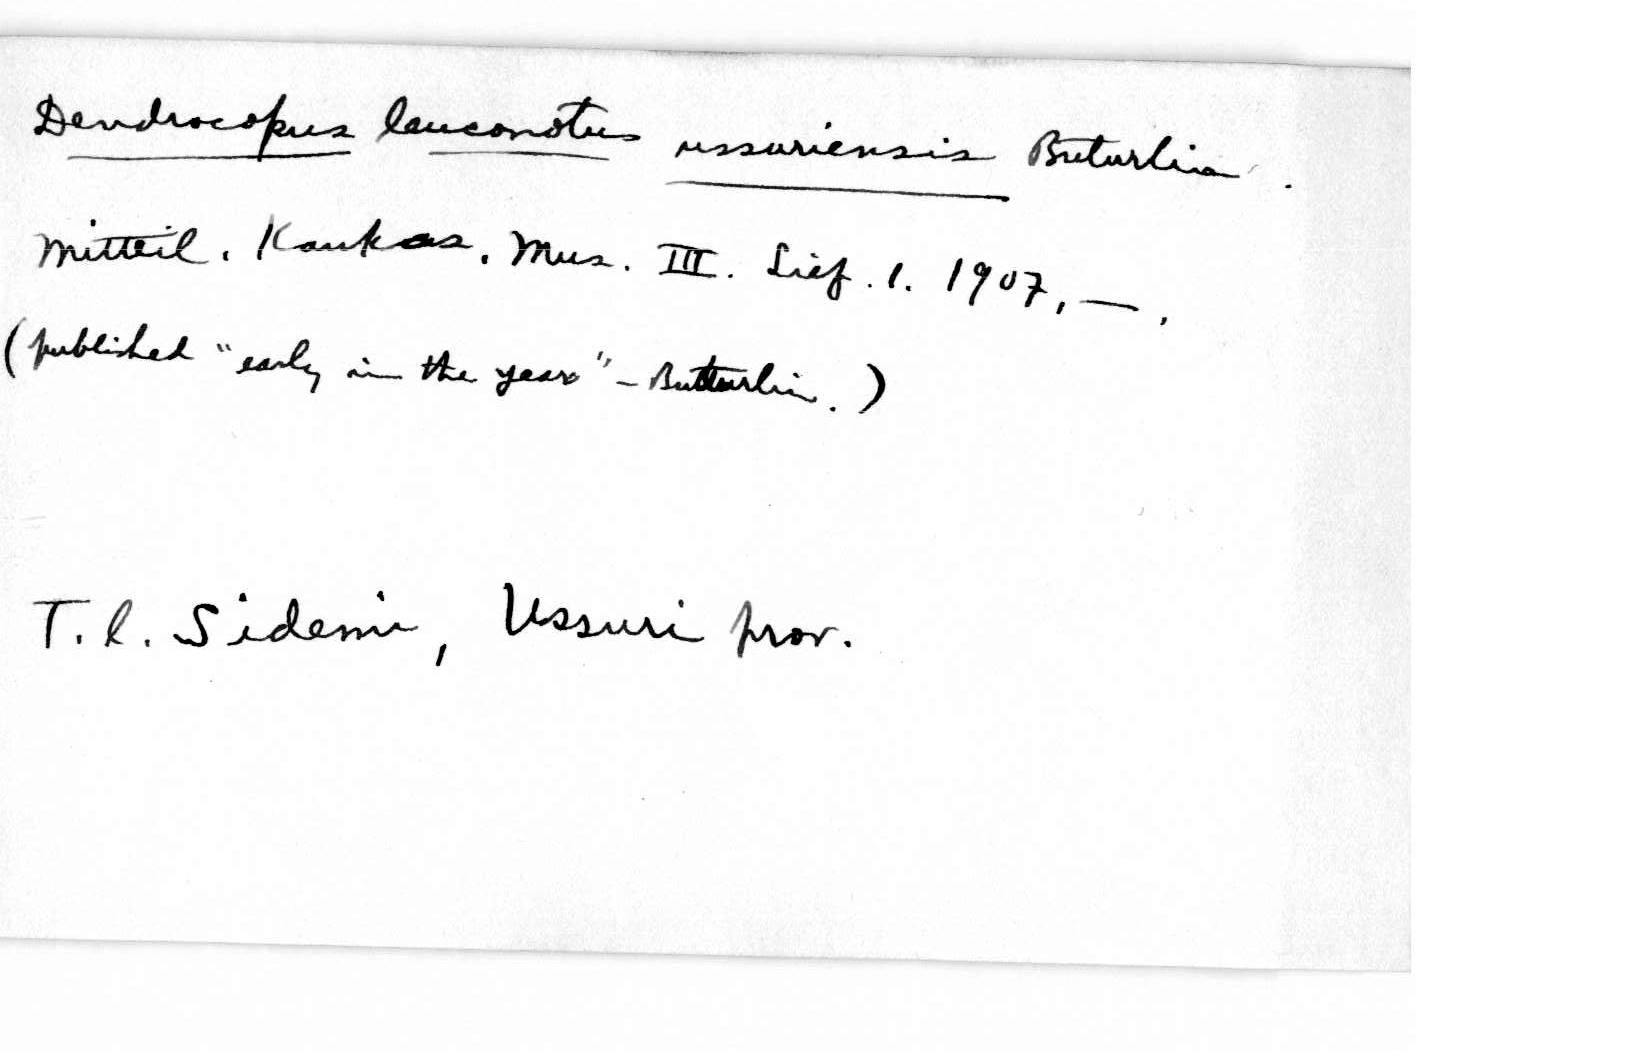 Dendrocopus leuconotus ussuriensis Buturlin.
Mitteil. Kaukas. Mus. III. Lief. 1. 1907, —,
(published "early in the year" – Buturlin.)
T. l. Sidemi, Ussuri prov.